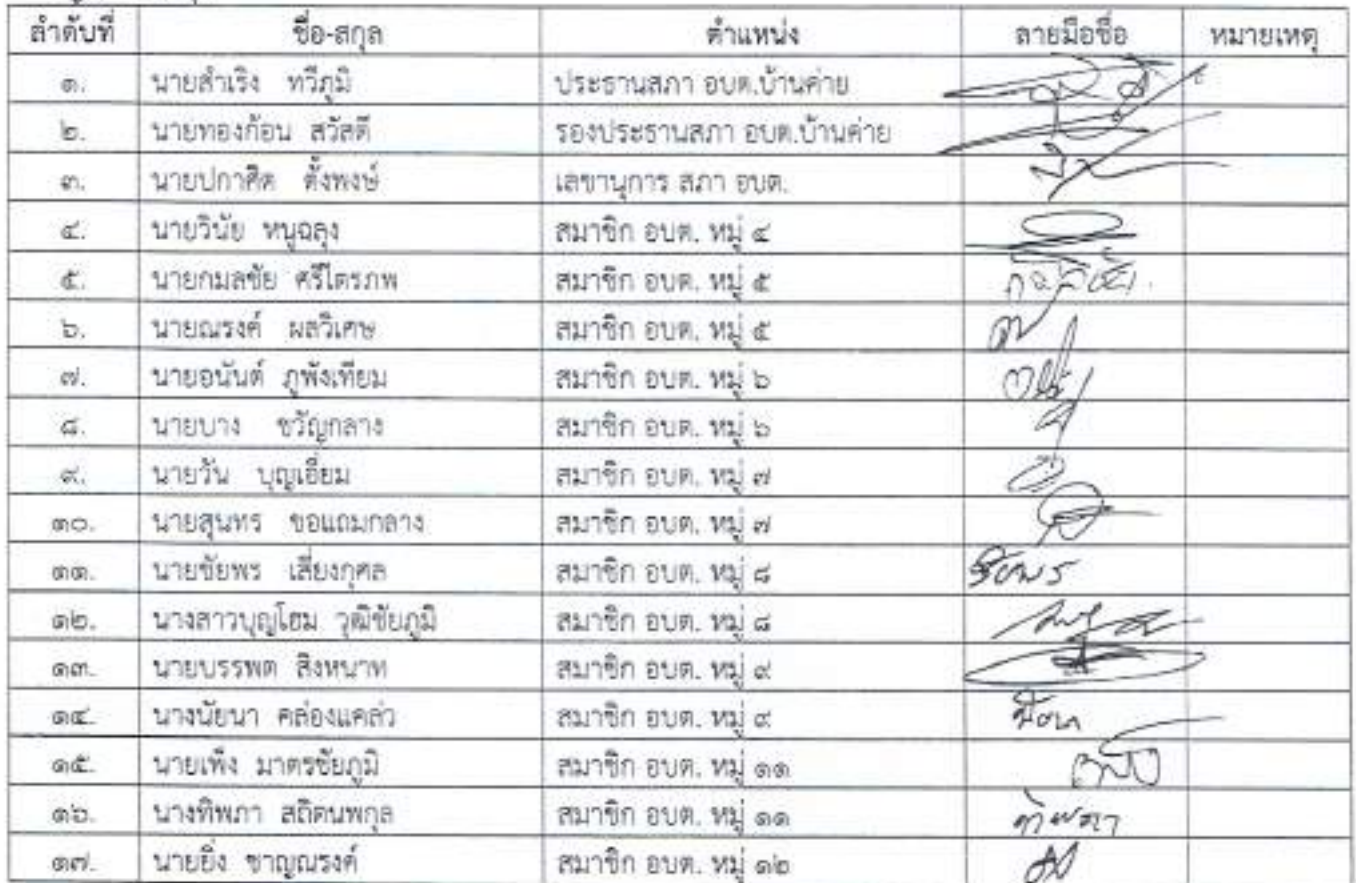 ลำดับที่ ชื่อ-สกุล ตำแหน่ง ลายมือชื่อ หมายเหตุ
๑. นายสำเริง ทวีภูมิ ประธานสภา อบต.บ้านค่าย
๒. นายทองก้อน สวัสดี รองประธานสภา อบต.บ้านค่าย
๓. นายปกาศิต ตั้งพงษ์ เลขานุการ สภา อบต.
๔. นายวินัย หนูฉลุง สมาชิก อบต. หมู่ ๔
๕. นายกมลชัย ศรีไตรภพ สมาชิก อบต. หมู่ ๕
๖. นายณรงค์ ผลวิเศษ สมาชิก อบต. หมู่ ๕
๗. นายอนันต์ ภูพังเทียม สมาชิก อบต. หมู่ ๖
๘. นายบาง ขวัญกลาง สมาชิก อบต. หมู่ ๖
๙. นายวัน บุญเอี่ยม สมาชิก อบต. หมู่ ๗
๑๐. นายสุนทร ขอแถมกลาง สมาชิก อบต. หมู่ ๗
๑๑. นายชัยพร เสี่ยงกุศล สมาชิก อบต. หมู่ ๘ ชัยพร
๑๒. นางสาวบุญโฮม วุฒิชัยภูมิ สมาชิก อบต. หมู่ ๘
๑๓. นายบรรพต สิงหนาท สมาชิก อบต. หมู่ ๙
๑๔. นางนัยนา คล่องแคล่ว สมาชิก อบต. หมู่ ๙
๑๕. นายเพ็ง มาตรชัยภูมิ สมาชิก อบต. หมู่ ๑๑
๑๖. นางทิพภา สถิตนพกุล สมาชิก อบต. หมู่ ๑๑ ทิพภา
๑๗. นายยิ่ง ชาญณรงค์ สมาชิก อบต. หมู่ ๑๒